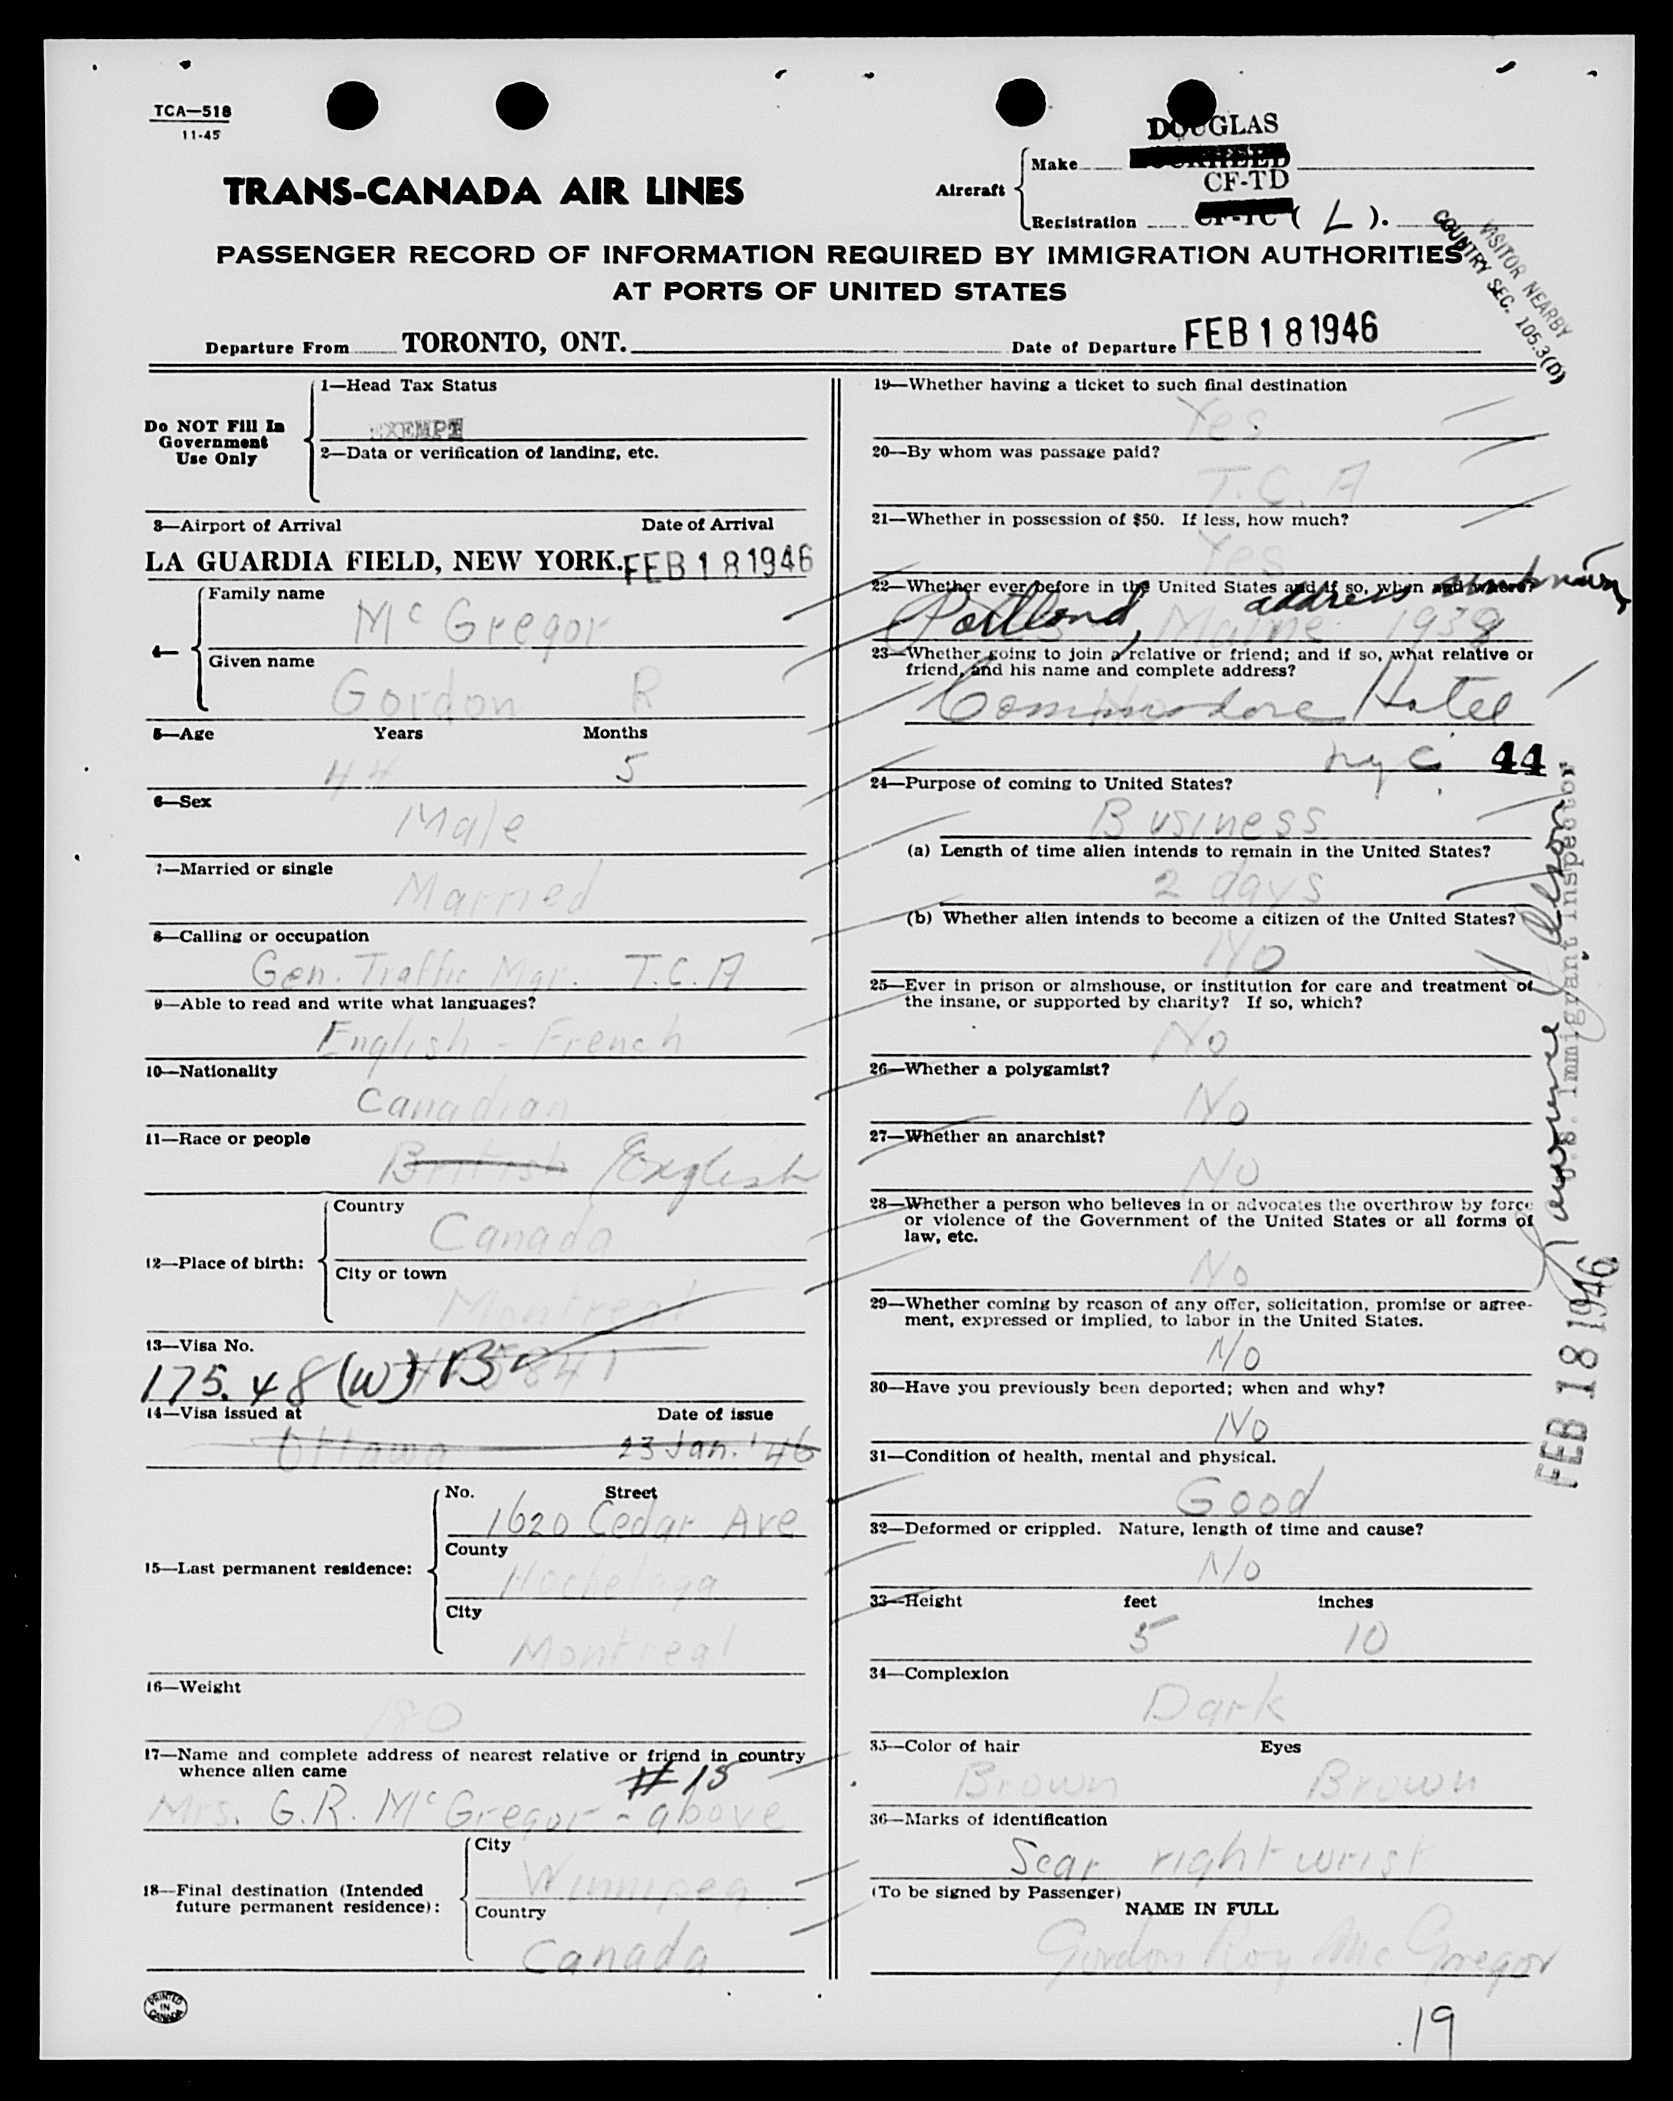 TCA—518
11-45
TRANS-CANADA AIR LINES
Aircraft
Make
DOUGLAS
CF-TD
Registration
CF-TC ( L ).
PASSENGER RECORD OF INFORMATION REQUIRED BY IMMIGRATION AUTHORITIES
AT PORTS OF UNITED STATES
VISITOR NEARBY
COUNTRY SEC. 105.3(D)
Departure From TORONTO, ONT.
Date of Departure FEB 18 1946
Do NOT Fill In
Government
Use Only
1—Head Tax Status
EXEMPT
2—Data or verification of landing, etc.
3—Airport of Arrival Date of Arrival
LA GUARDIA FIELD, NEW YORK. FEB 18 1946
4—
Family name
McGregor
Given name
Gordon R
5—Age Years Months
44 5
6—Sex
Male
7—Married or single
Married
8—Calling or occupation
Gen. Traffic Mgr. T.C.A
9—Able to read and write what languages?
English - French
10—Nationality
Canadian
11—Race or people
British English
12—Place of birth:
Country
Canada
City or town
Montreal
13—Visa No.
175.48 (W) B
14—Visa issued at Date of issue
Ottawa 23 Jan. '46
15—Last permanent residence:
No. Street
1620 Cedar Ave
County
Hochelaga
City
Montreal
16—Weight
180
17—Name and complete address of nearest relative or friend in country
whence alien came
#15
Mrs. G.R. McGregor - above
18—Final destination (Intended
future permanent residence):
City
Winnipeg
Country
Canada
PRINTED
IN
CANADA
19—Whether having a ticket to such final destination
Yes
20—By whom was passage paid?
T.C.A
21—Whether in possession of $50. If less, how much?
Yes
22—Whether ever before in the United States and if so, when and where?
address unknown
Portland, Maine 1938
23—Whether going to join a relative or friend; and if so, what relative or
friend, and his name and complete address?
Commodore Hotel
nyc 44
24—Purpose of coming to United States?
Business
(a) Length of time alien intends to remain in the United States?
2 days
(b) Whether alien intends to become a citizen of the United States?
No
25—Ever in prison or almshouse, or institution for care and treatment of
the insane, or supported by charity? If so, which?
No
26—Whether a polygamist?
No
27—Whether an anarchist?
No
28—Whether a person who believes in or advocates the overthrow by force
or violence of the Government of the United States or all forms of
law, etc.
No
29—Whether coming by reason of any offer, solicitation, promise or agree-
ment, expressed or implied, to labor in the United States.
No
30—Have you previously been deported; when and why?
No
31—Condition of health, mental and physical.
Good
32—Deformed or crippled. Nature, length of time and cause?
No
33—Height feet inches
5 10
34—Complexion
Dark
35—Color of hair Eyes
Brown Brown
36—Marks of identification
Scar right wrist
(To be signed by Passenger)
NAME IN FULL
Gordon Roy McGregor
U.S. Immigrant Inspector
FEB 18 1946
19